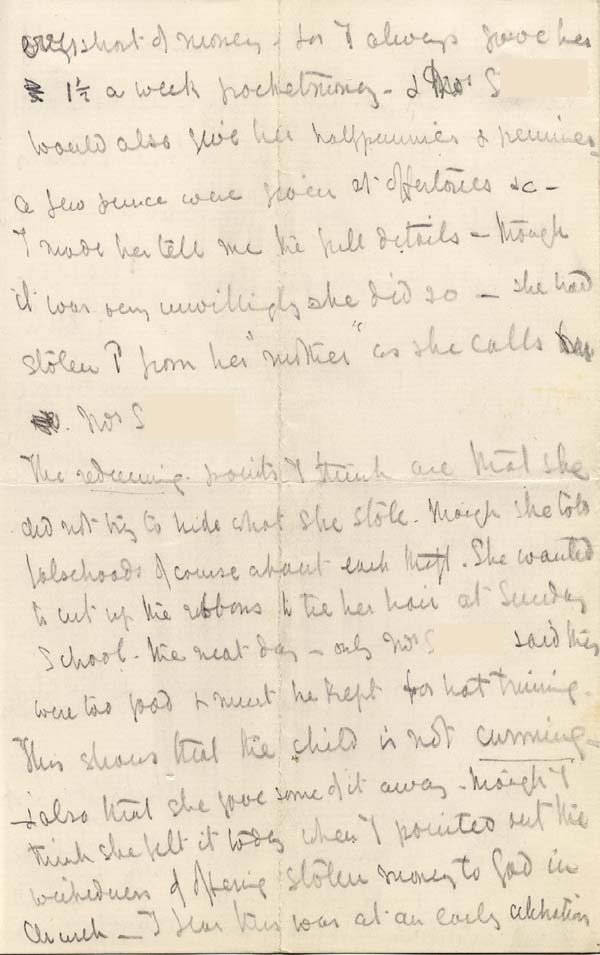 very short of money - for I always gave her
1½ a week pocketmoney - & Mrs S
would also give her halfpennies & pennies -
a few pence were given at offertories &c -
I made her tell me the full details - though
it was very unwillingly she did so - she had
stolen from her "mother" as she calls
Mrs S
The redeeming points I think are that she
did not try to hide what she stole. Though she told
falsehoods of course about each theft. She wanted
to cut up the ribbons to tie her hair at Sunday
School - the next day - only Mrs S said they
were too good & must be kept for hat trimming.
This shows that the child is not cunning -
& also that she gave some of it away - though I
think she felt it today when I pointed out the
wickedness of offering stolen money to God in
Church - I fear this was at an early celebration